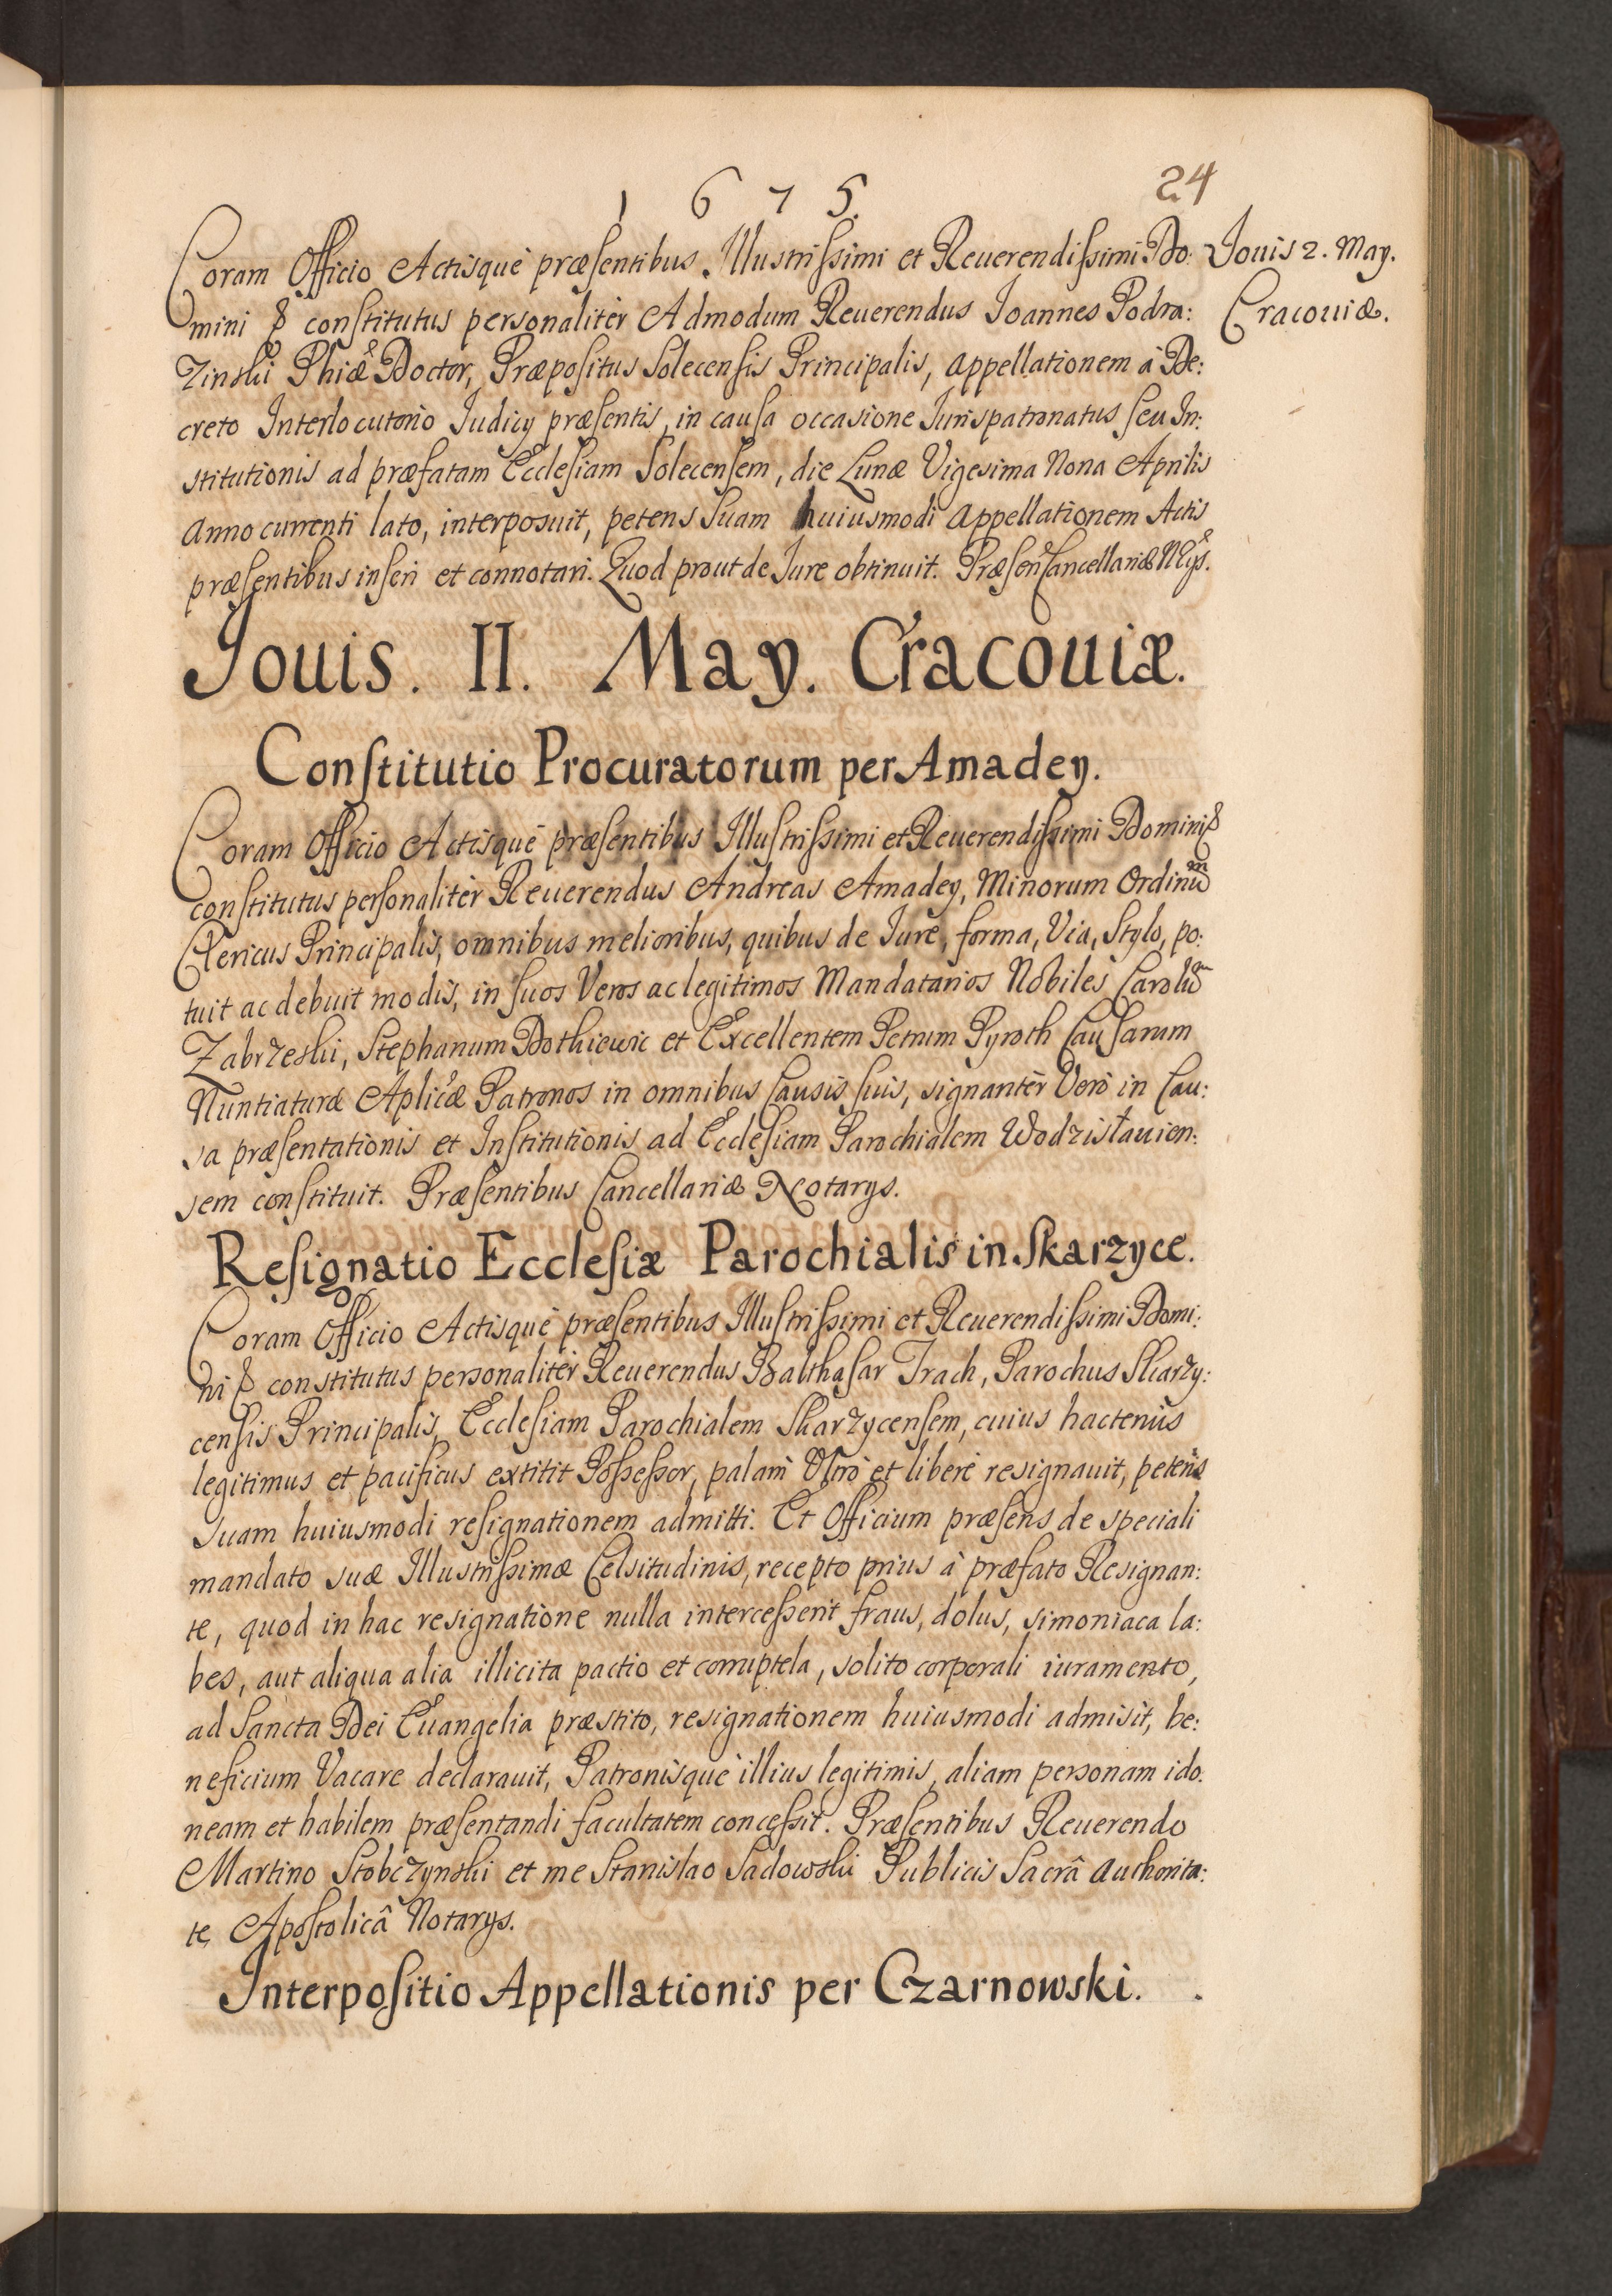 1675.
24
Coram Officio Actisque præsentibus Illustrissimi et Reuerendissimi Do:
Jouis 2. May.
mini & constitutus personaliter Admodum Reuerendus Joannes Podra:
Cracouiæ.
zinski Phiæ Doctor, Præpositus Solecensis Principalis, appellationem à De:
creto Interlocutorio Judicy præsentis, in causa occasione Jurispatronatus seu In:
stitutionis ad præfatam Ecclesiam Solecensem, die Lunæ Vigesima Nona Aprilis
Anno currenti lato, interposuit, petens suam huiusmodi appellationem Actis
præsentibus inseri et connotari. Quod prout de Jure obtinuit. Præsen Cancellariæ Nrys.
Jouis. II. May. Cracouiæ.
Constitutio Procuratorum per Amadey.
Coram Officio Actisque præsentibus Illustrissimi et Reuerendissimi Domini &
constitutus personaliter Reuerendus Andreas Amadey, Minorum Ordinum
Clericus Principalis, omnibus melioribus, quibus de Jure, forma, Via, Stylo, po:
tuit ac debuit modis, in suos Veros ac legitimos Mandatarios Nobiles Carolum
Zabrzeski, Stephanum Dothiewic et Excellentem Petrum Pyroth Causarum
Nuntiaturæ Aplicæ Patronos in omnibus Causis suis, signanter Vero in Cau:
sa præsentationis et Institutionis ad Ecclesiam Parochialem Wodzisłauien:
sem constituit. Præsentibus Cancellariæ Notarys.
Resignatio Ecclesiæ Parochialis in Skarzyce.
Coram Officio Actisque præsentibus Illustrissimi et Reuerendissimi Domi:
ni & constitutus personaliter Reuerendus Balthasar Trach, Parochus Skarzy:
censis Principalis, Ecclesiam Parochialem Skarzycensem, cuius hactenùs
legitimus et pacificus extitit Possessor, palam Vltro et libere resignauit, petens
suam huiusmodi resignationem admitti. Et Officium præsens de speciali
mandato suæ Illustrissimæ Celsitudinis, recepto prius à præfato Resignan:
te, quod in hac resignatione nulla intercesserit fraus, dolus, simoniaca la:
bes, aut aliqua alia illicita pactio et corruptela, solito corporali iuramento,
ad Sancta Dei Euangelia præstito, resignationem huiusmodi admisit, be:
neficium Vacare declarauit, Patronisque illius legitimis, aliam personam ido:
neam et habilem præsentandi facultatem concessit. Præsentibus Reuerendo
Martino Stobczynski et me Stanislao Sadowski Publicis Sacrâ authorita:
te Apostolicâ Notarys.
Interpositio Appellationis per Czarnowski.